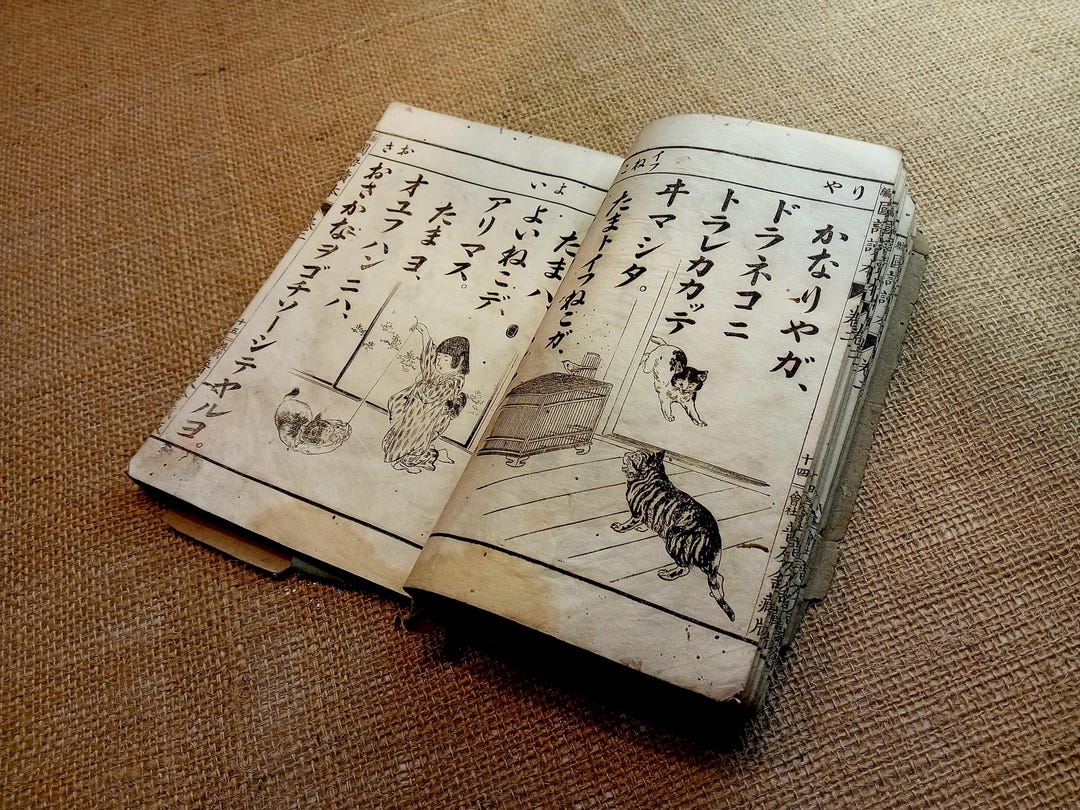 十四
りや
イフ
ね
かなりやガ、
ドラネコニ
トラレカカッテ
ヰマシタ。
たまトイフねこガ、
よい
おさ
たまハ、
よいねこデ、
アリマス。
たまヨ、
オユフハンニハ、
おさかなヲゴチソーシテヤルヨ。
十五